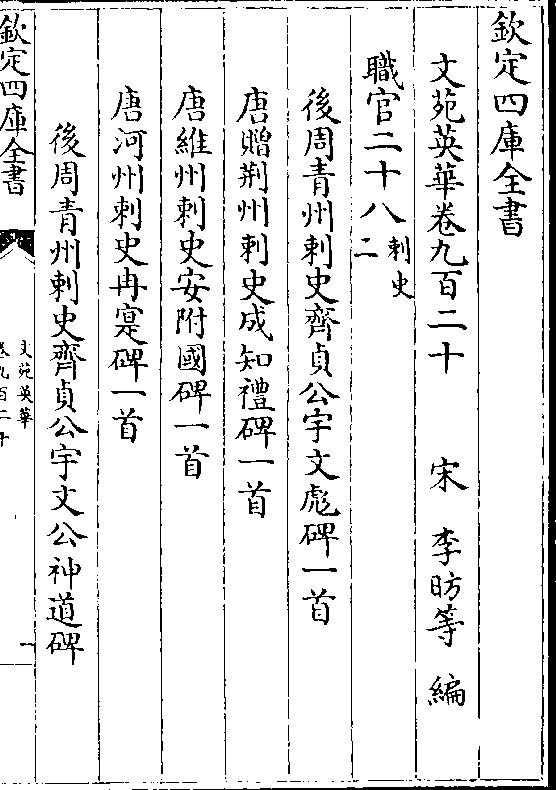 欽定四庫全書
文苑英華卷九百二十　宋　李昉等　編
職官二十八刺史二
後周青州刺史齊貞公宇文彪碑一首
唐贈荆州刺史成知禮碑一首
唐維州刺史安附國碑一首
唐河州刺史冉寔碑一首
後周青州刺史齊貞公宇文公神道碑
欽定四庫全書
文苑英華
卷九百二十
一